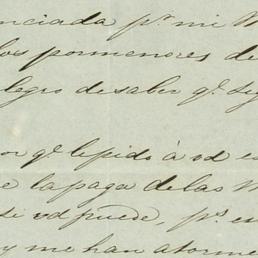 nciada pr. mi
los pormenores de
legro de saber qe. sig
or qe. le pido à vd es
e la paga de las
si vd puede, ps. en
y me han atorme